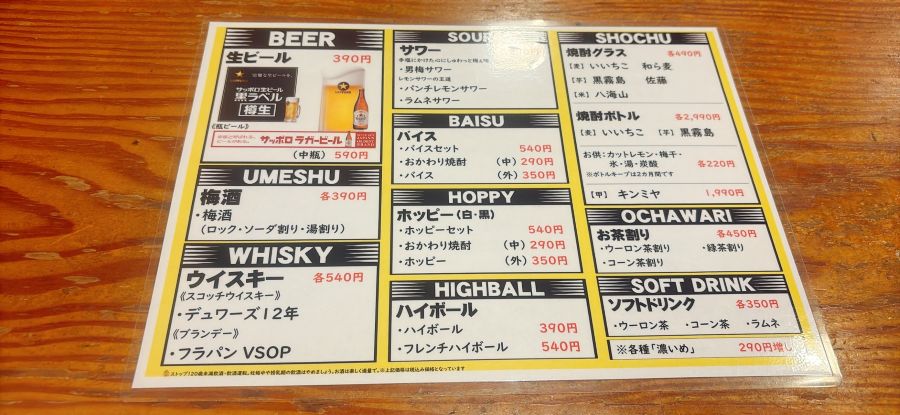 BEER
生ビール 390円
サッポロ生ビール
黒ラベル
樽生
《瓶ビール》
サッポロ ラガービール
(中瓶) 590円
UMESHU
梅酒 各390円
・梅酒
(ロック・ソーダ割り・湯割り)
WHISKY
ウイスキー 各540円
《スコッチウイスキー》
・デュワーズ12年
《ブランデー》
・フラパン VSOP
サワー
・男梅サワー
レモンサワーの王道
・パンチレモンサワー
・ラムネサワー
BAISU
バイス
・バイスセット 540円
・おかわり焼酎 (中) 290円
・バイス (外) 350円
HOPPY
ホッピー (白・黒)
・ホッピーセット 540円
・おかわり焼酎 (中) 290円
・ホッピー (外) 350円
HIGHBALL
ハイボール
・ハイボール 390円
・フレンチハイボール 540円
SHOCHU
焼酎グラス 各490円
[麦] いいちこ 和ら麦
[芋] 黒霧島 佐藤
[米] 八海山
焼酎ボトル 各2,990円
[麦] いいちこ [芋] 黒霧島
お供:カットレモン・梅干・
氷・湯・炭酸 各220円
※ボトルキープは2カ月間です
[甲] キンミヤ 1,990円
OCHAWARI
お茶割り 各450円
・ウーロン茶割り ・緑茶割り
・コーン茶割り
SOFT DRINK
ソフトドリンク 各350円
・ウーロン茶 ・コーン茶 ・ラムネ
※各種「濃いめ」 290円増し
ストップ!20歳未満飲酒・飲酒運転。妊娠中や授乳期の飲酒はやめましょう。お酒は楽しく適量で。※上記価格は税込み価格となっています